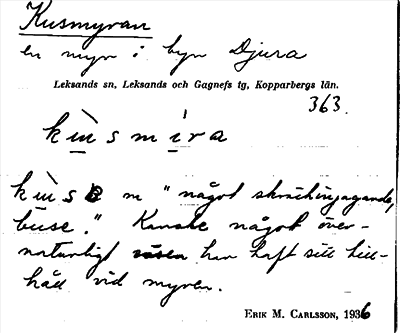 Kusmyran
en myr i byn Djura
Leksands sn, Leksands och Gagnefs tg, Kopparbergs län.
363.
kùsmíra
kùse m "något skräckinjagande,
buse." Kanske något över-
naturligt väsen har haft sitt till-
håll vid myren.
ERIK M. CARLSSON, 1936